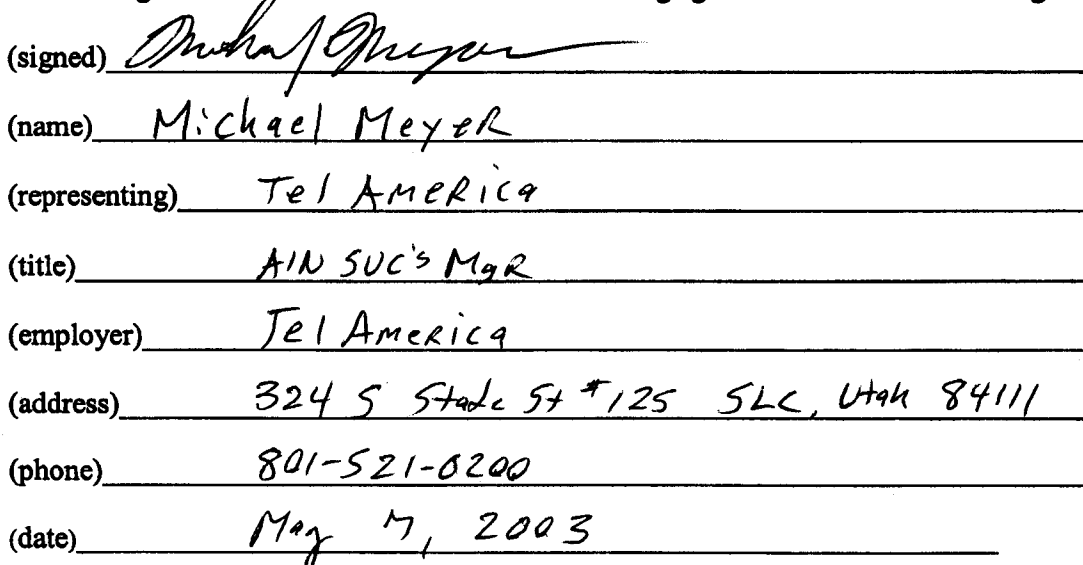 (signed) Michael Meyer
(name) Michael Meyer
(representing) Tel America
(title) AIN SVC's Mgr
(employer) Tel America
(address) 324 S State St #125 SLC, Utah 84111
(phone) 801-521-0200
(date) May 7, 2003